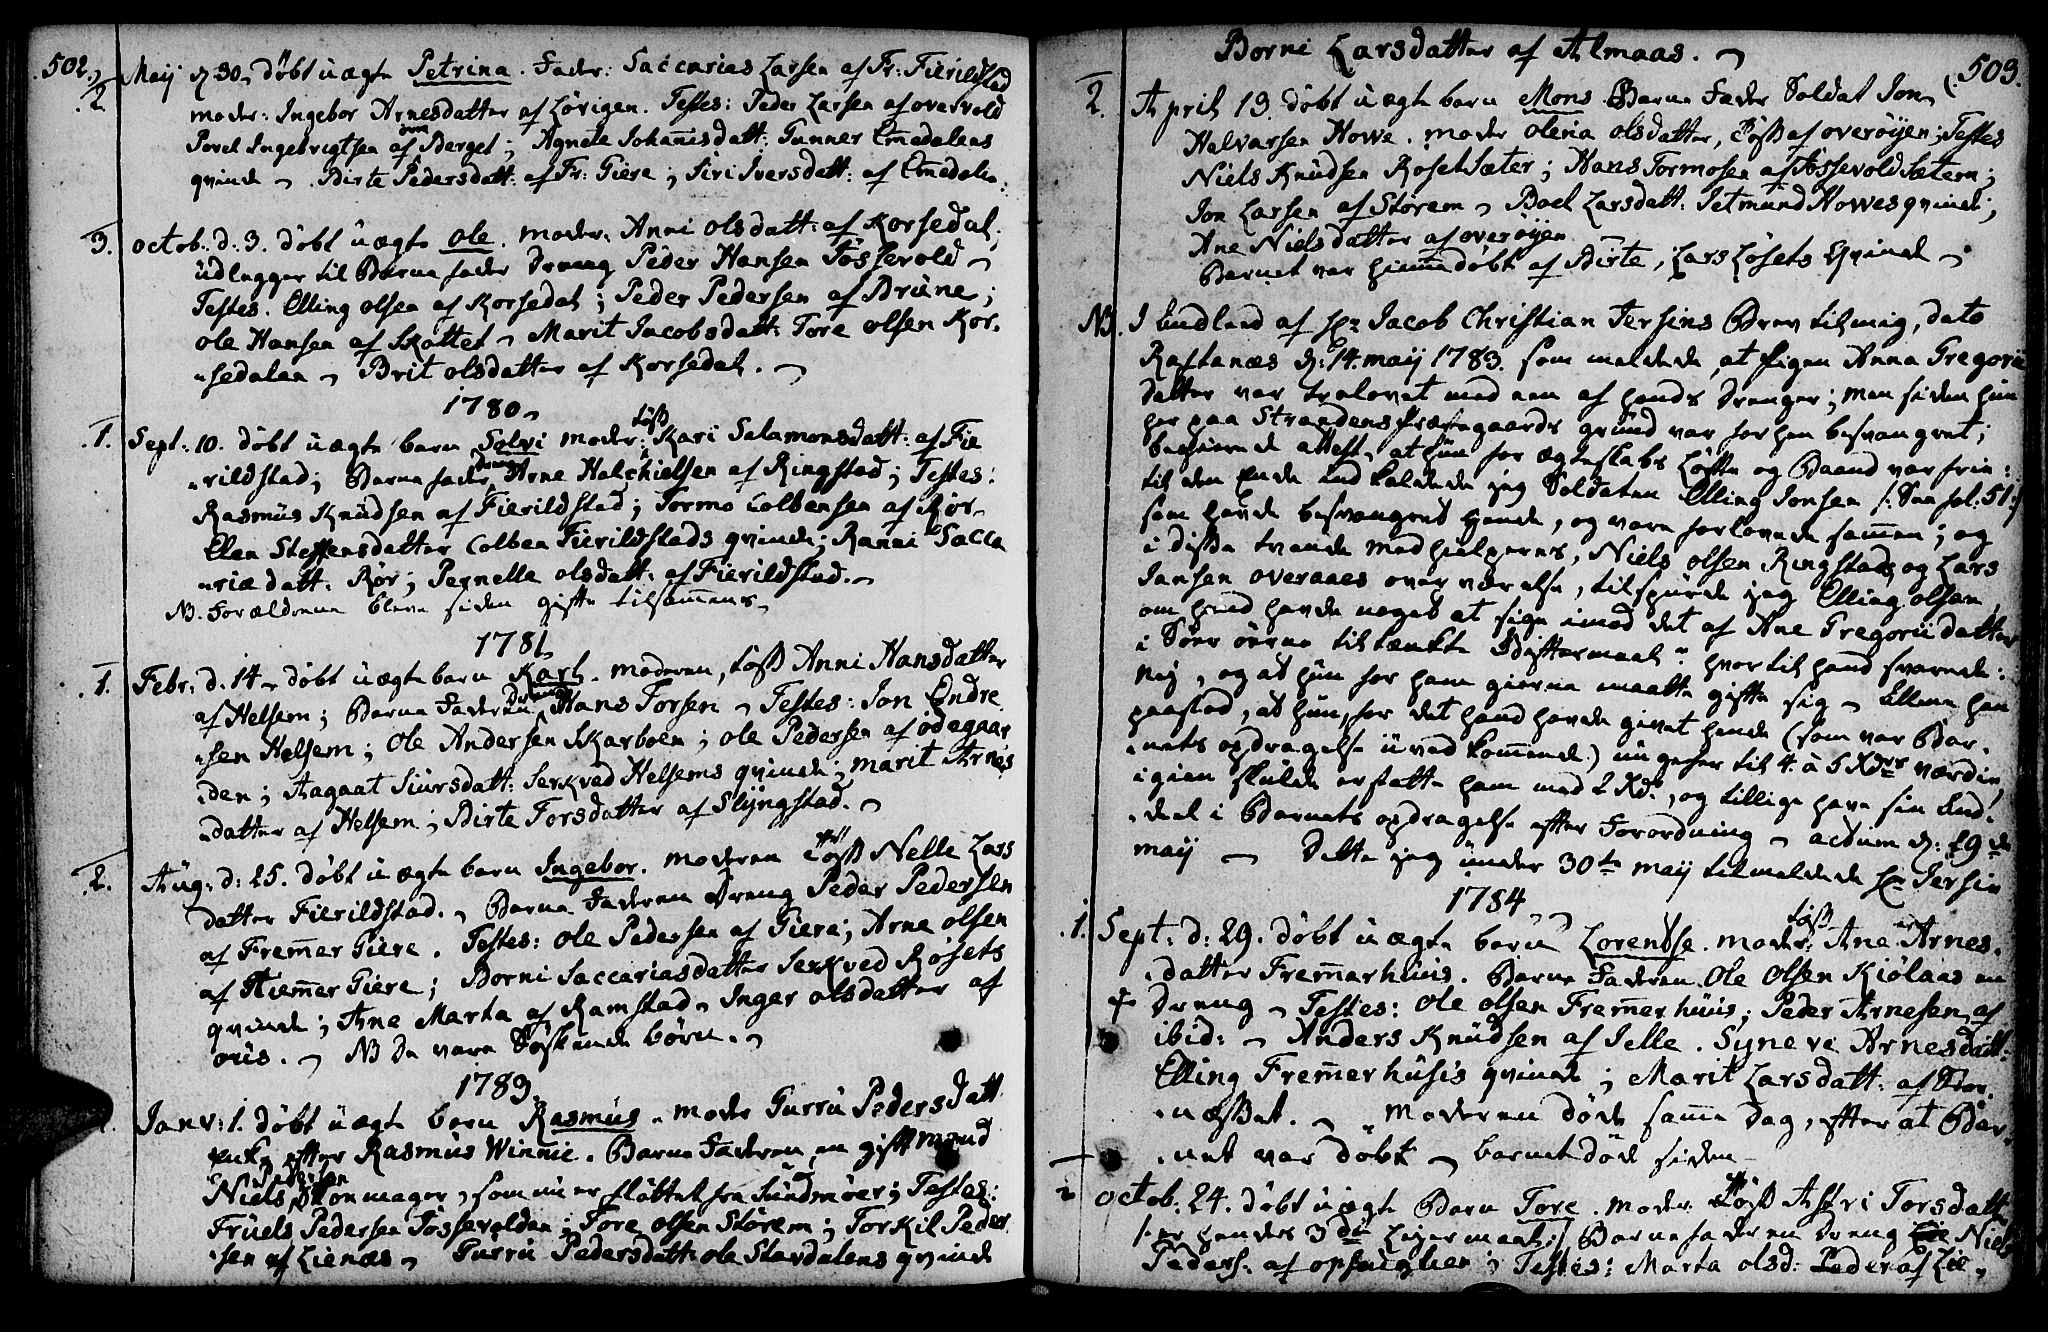 502.
2. Maij d. 30. døbt uægte Petrina. Fader: Saccarias Larsen af Fr: Fierildstad
moder: Ingebor Arnesdatter af Løvigen. Testes: Peder Larsen af overvold
Povel Ingebrigtsen af Berget; Agnete Johanisdatt: Gunner Emedalens
qvinde - Birte Pedersdatt: af Fr: Giere; Siri Iversdatt: af Emedalen.
3. octob: d. 3. døbt uægte Ole. moder: Anni olsdatt: af Korsedal;
udlægger til Barne fader Dreng Peder Hansen Fossevold -
Testes. Elling olsen af Korsedal; Peder Pedersen af Brune;
ole Hansen af Skottet - Marit Iacobsdatt: Tore olsen Kor-
-sedalen - Brit olsdatter af Korsedal. -
1780.
1. Sept: 10. døbt uægte barn Solvi moder: Løss Kari Salamonsdatt: af Fie
-rildstad; Barne fader dreng Arne Halchielsen af Ringstad; Testes:
Rasmus Knudsen af Fierildstad; Tormo Colbensen af Rør -
Elen Steffensdatter Colben Fierildstads qvinde; Ranni Sacca
-riædatt. Rør; Pernelle olsdatt: af Fierildstad. -
NB. Forældrene bleve siden gifte tilsammens -
1781.
1. Febr: d. 14. døbt uægte barn Karl. moderen, Løss Anni Hansdatter
af Helsem; Barne Faderen Dreng Hans Torsen - Testes: Ion Endre
-sen Helsem; Ole Andersen Skarboen; ole Pedersen af ødegaar
-den; Aagaat Siursdatt: Serkved Helsems qvinde; marit Arnes
-datter af Helsem; Birte Torsdatter af Slyngstad. -
2. Aug: d: 25. døbt uægte barn Ingebor. moderen Løss Nelle Lars
datter Fierildstad. - Barne Faderen Dreng Peder Pedersen
af Fremer Giere. Testes: ole Pedersen af Giere; Arne olsen
af Hiemer Giere; Borni Saccariasdatter Serkved Røsets
qvinde; Ane Marta af Ramstad - Inger olsdatter af
ouis. - NB De vare Søskende børn. -
1783.
Ianv: 1. døbt uægte barn Rasmus. moder Gurru Pedersdatt
enke efter Rasmus Winnie. Barne Faderen en gift mand
Niels Pedersen Honmager, som nu er fløttet fra Sundmøer; Testes:
Fruels Pedersen Fossevolden; Tore olsen Størem; Torkil Peder
-sen af Lienæs - Gurru Pedersdatt: ole Stavdalens qvinde
Borni Larsdatter af Almaas. -
503.
2. April 13. døbt uægte barn Mons Barne Fader Soldat Ion
Halvarsen Howe. moder Olena olsdatter, Løss af overøyen; Testes
Niels Knudsen Roset Sæter; Hans Tormosen af Fossevold Sætern;
Ion Larsen af Størem - Boel Larsdatt: Ietmund Howes qvinde;
Ane Nielsdatter af overøyen
Barnet var hiemedøbt af Birte, Lars Løsets Qvinde -
NB. I Anledn: af Hr Iacob Christian Iersins Brev til mig, dato
Rastanæs d: 14. maij 1783. som meldede, at Pigen Anna Gregorii
datter var trolovet med een af hands Drenger; men siden hun
her paa Strandens Præstegaards grund var forhen besvangret;
begierede attest, at hun for ægteskabs Løfte og Baand var frie:
til den Ende indkaldede jeg Soldaten Elling Ionsen /: See fol. 51:/
som havde besvangret hende, og vare forlovede samen; og
i disse tvende medhielperes, Niels olsen Ringstads, og Lars
Iansen overaaes overværelse, tilspurde jeg Elling olsen
om hand havde noget at sige imod det af Ane Gregorii datter
i Søer øerne tiltænkte Giftermaal? hvortil hand svarede:
Nej, og at hun for ham gierne maatte gifte sig - Allene han
paastod, at hun, for det hand havde givet hende (som var Bar-
-nets opdragelse uvedkomende) ungefer til 4. à 5 Rdrs værdie,
igien skulde erstatte ham med 2 Rd., og tillige have sin And-
-deel i Barnets opdragelse efter Forordning - actum d: 29de
maij - Dette jeg under 30te maij tilmeldede Hr Iersin
1784. -
1. Sept: d: 29. døbt uægte barn Lorentse. moder: Løss Ane Arnes-
-datter Fremerhuus. Barne Faderen Ole Olsen Kiølaas en
Dreng - Testes: Ole olsen Fremerhuus; Peder Arnesen af
ibid: - Anders Knudsen af Ielle. Syneve Arnesdatt:
Elling Fremerhusis qvinde; Marit Larsdatt: af Frør-
-næsset. - Moderen døde same Dag, efter at Bar-
-net var døbt - barnet døde siden -
2 octob: 24. døbt uægte Barn Tore. moder Løss Astri Torsdatt
/: er hendes 3de Leyermaal :/ Barne faderen Dreng Niels
Peders: af opshuglien; Testes: Marta olsd: Peder af Lie-